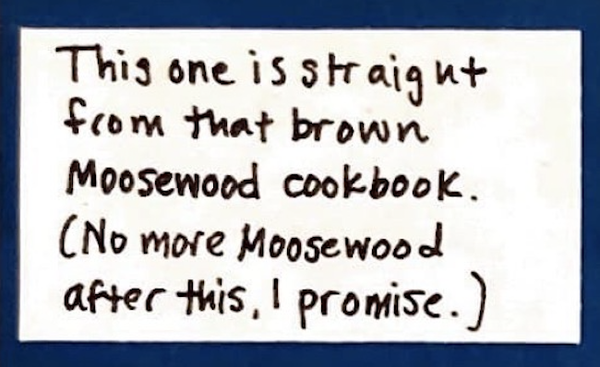 This one is straight
from that brown
Moosewood cookbook.
(No more Moosewood
after this, I promise.)